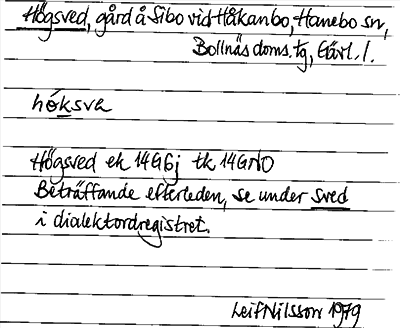 Högsved, gård å Sibo vid Håkanbo, Hanebo sn,
Bollnäs doms. tg, Gävl. l.
hö́ksva
Högsved ek 14G6j tk 14GNO
Beträffande efterleden, se under sved
i dialektordregistret.
Leif Nilsson 1979